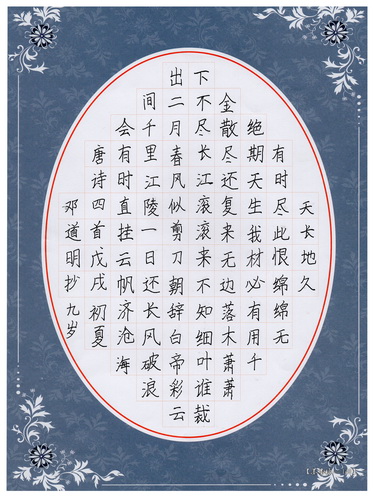 天长地久
有时尽此恨绵绵无
绝期天生我材必有用千
金散尽还复来无边落木萧萧
下不尽长江滚滚来不知细叶谁裁
出二月春风似剪刀朝辞白帝彩云
间千里江陵一日还长风破浪
会有时直挂云帆济沧海
唐诗四首戊戌初夏
邓道明抄九岁